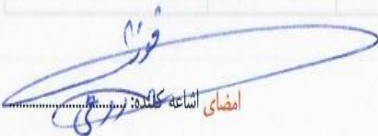 امضای اشاعه کننده: ........................